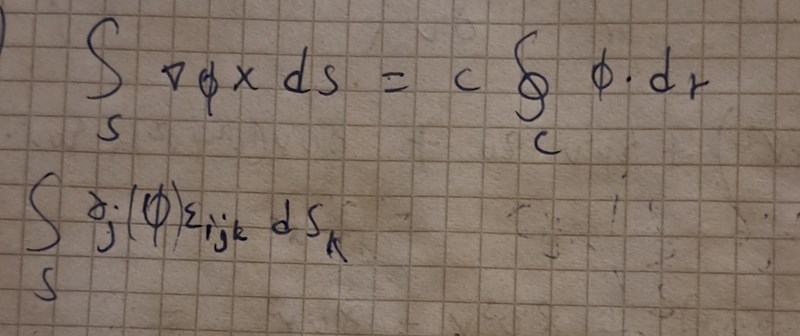 ) ∫_S ∇ϕ × ds = c ∮_C ϕ · dr
∫_S ∂_j(ϕ)ε_ijk dS_k